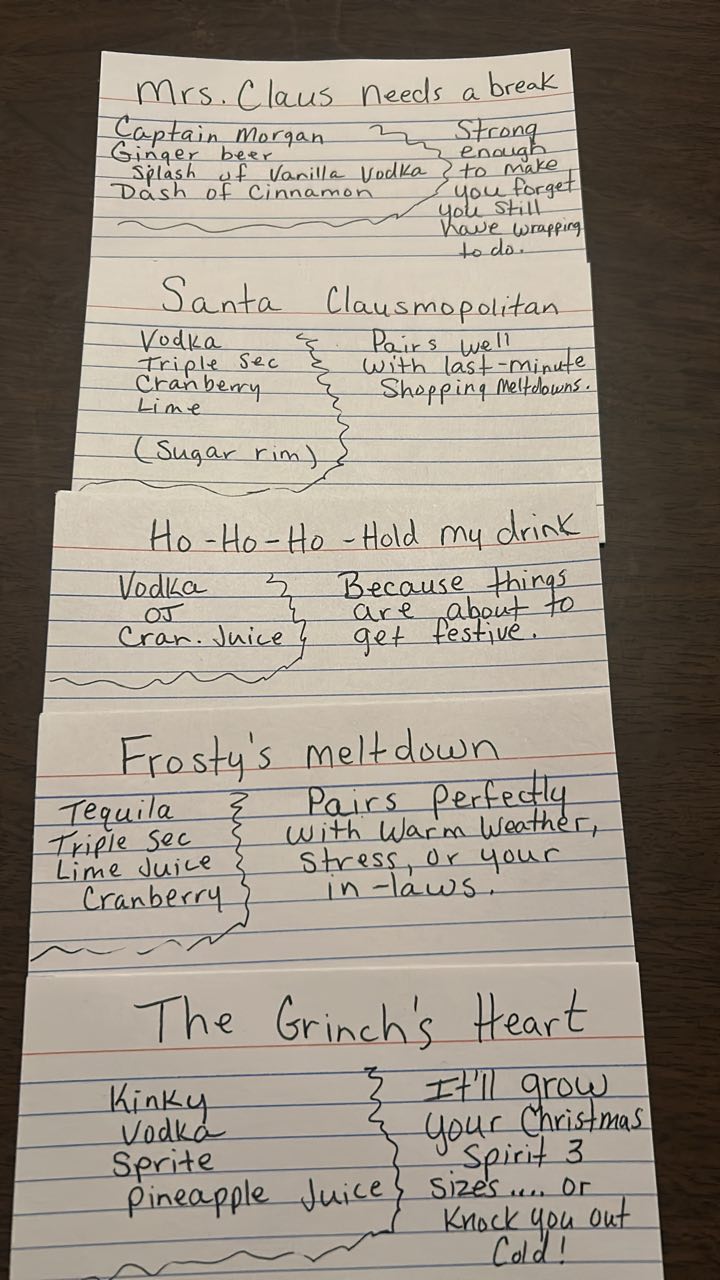 Mrs. Claus needs a break
Captain Morgan
Ginger beer
Splash of Vanilla Vodka
Dash of Cinnamon
Strong
enough
to make
you forget
you still
have wrapping
to do.
Santa Clausmopolitan
Vodka
Triple Sec
Cranberry
Lime
(Sugar rim)
Pairs well
with last-minute
Shopping Meltdowns.
Ho-Ho-Ho-Hold my drink
Vodka
OJ
Cran. Juice
Because things
are about to
get festive.
Frosty's meltdown
Tequila
Triple Sec
Lime Juice
Cranberry
Pairs Perfectly
with Warm Weather,
Stress, or your
in-laws.
The Grinch's Heart
Kinky
Vodka
Sprite
Pineapple Juice
It'll grow
your Christmas
Spirit 3
sizes.... or
Knock you out
Cold!